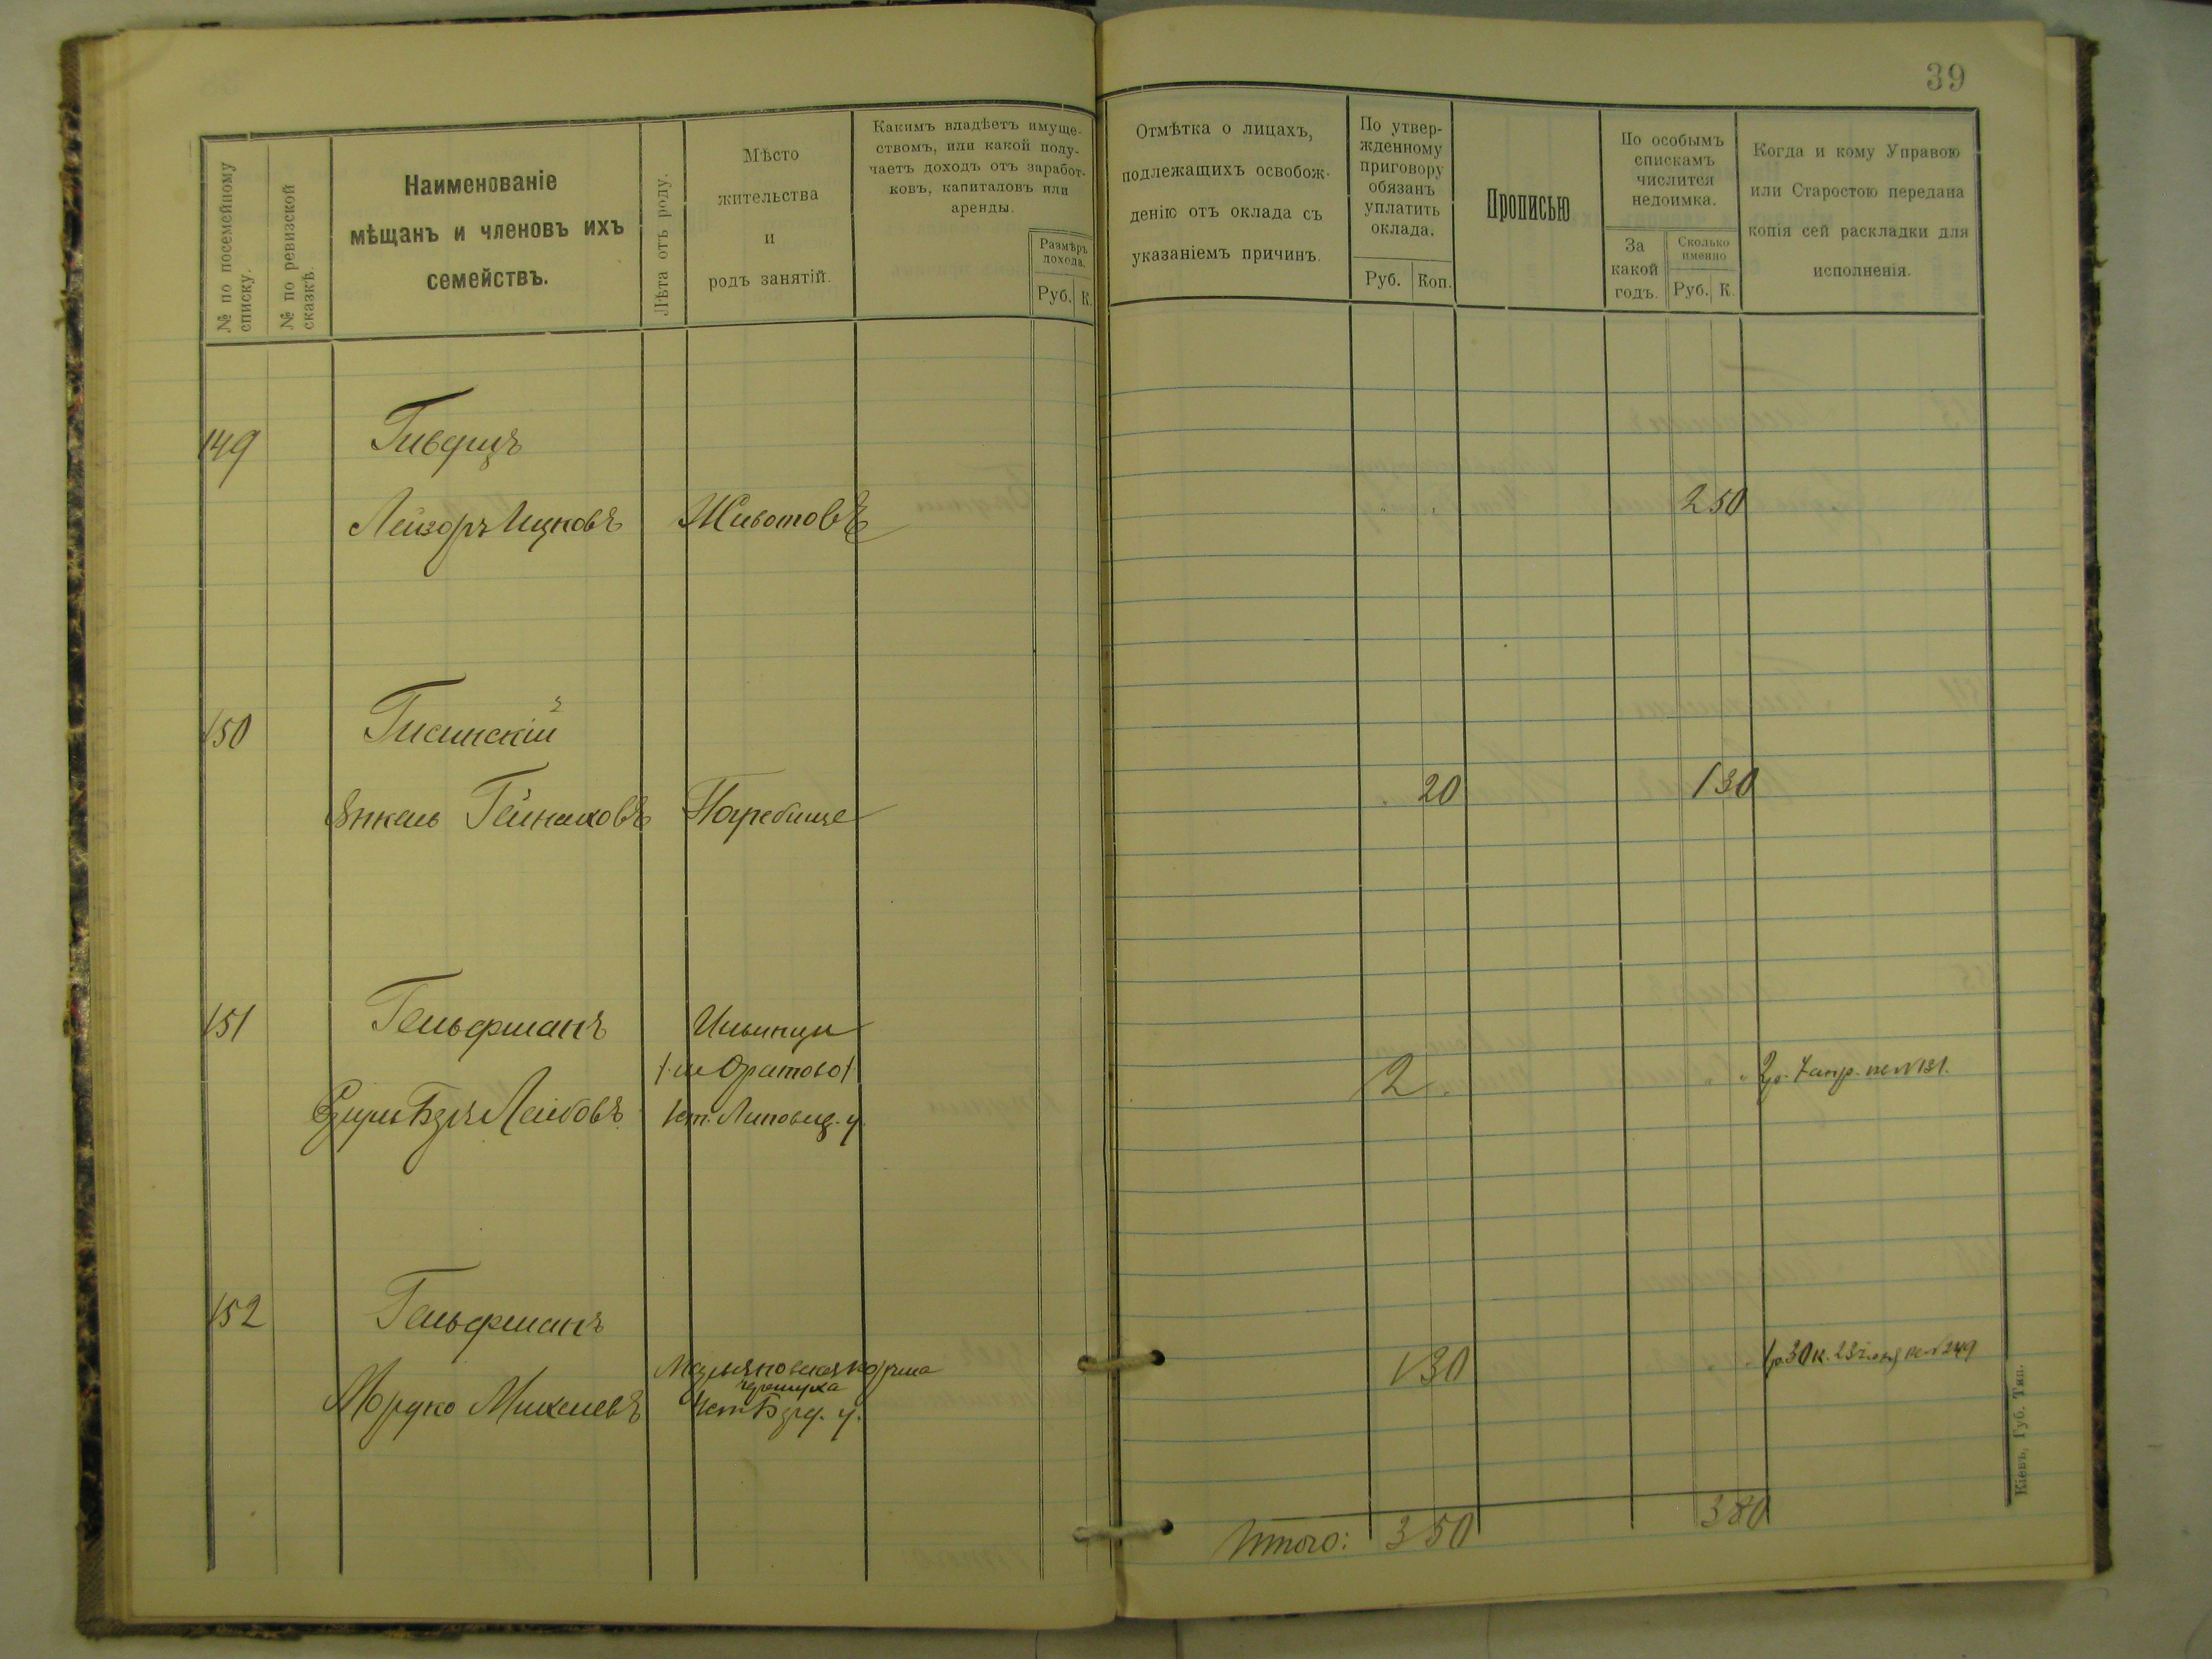 39
№ по посемейному списку.
№ по ревизской сказкѣ.
Наименованіе
мѣщанъ и членовъ ихъ
семействъ.
Лѣта отъ роду.
Мѣсто
жительства
и
родъ занятій.
Какимъ владѣетъ имуще-
ствомъ, или какой полу-
чаетъ доходъ отъ заработ-
ковъ, капиталовъ или
аренды.
Размѣръ
дохода.
Руб. К.
Отмѣтка о лицахъ,
подлежащихъ освобож-
денію отъ оклада съ
указаніемъ причинъ.
По утвер-
жденному
приговору
обязанъ
уплатить
оклада.
Руб. Коп.
Прописью
По особымъ
спискамъ
числится
недоимка.
За
какой
годъ.
Сколько
именно
Руб. К.
Когда и кому Управою
или Старостою передана
копія сей раскладки для
исполненія.
149 Гивфицъ
Лейзоръ Ицковъ Животовъ 2 50
150 Гисинскій
Янкель Гейнаховъ Погребище 20 1 30
151 Гельфманъ Ильинцы
/м Оратово/
Лейбовъ Кіт. Липовец. у. 2
2 р. 7 апр. кв № 131.
152 Гельфманъ
Мордко Михелевъ корчма
у.
1 30
1 р. 30 к. 23 кв № 249
Итого: 3 50 3 80
Кіевъ, Губ. Тип.